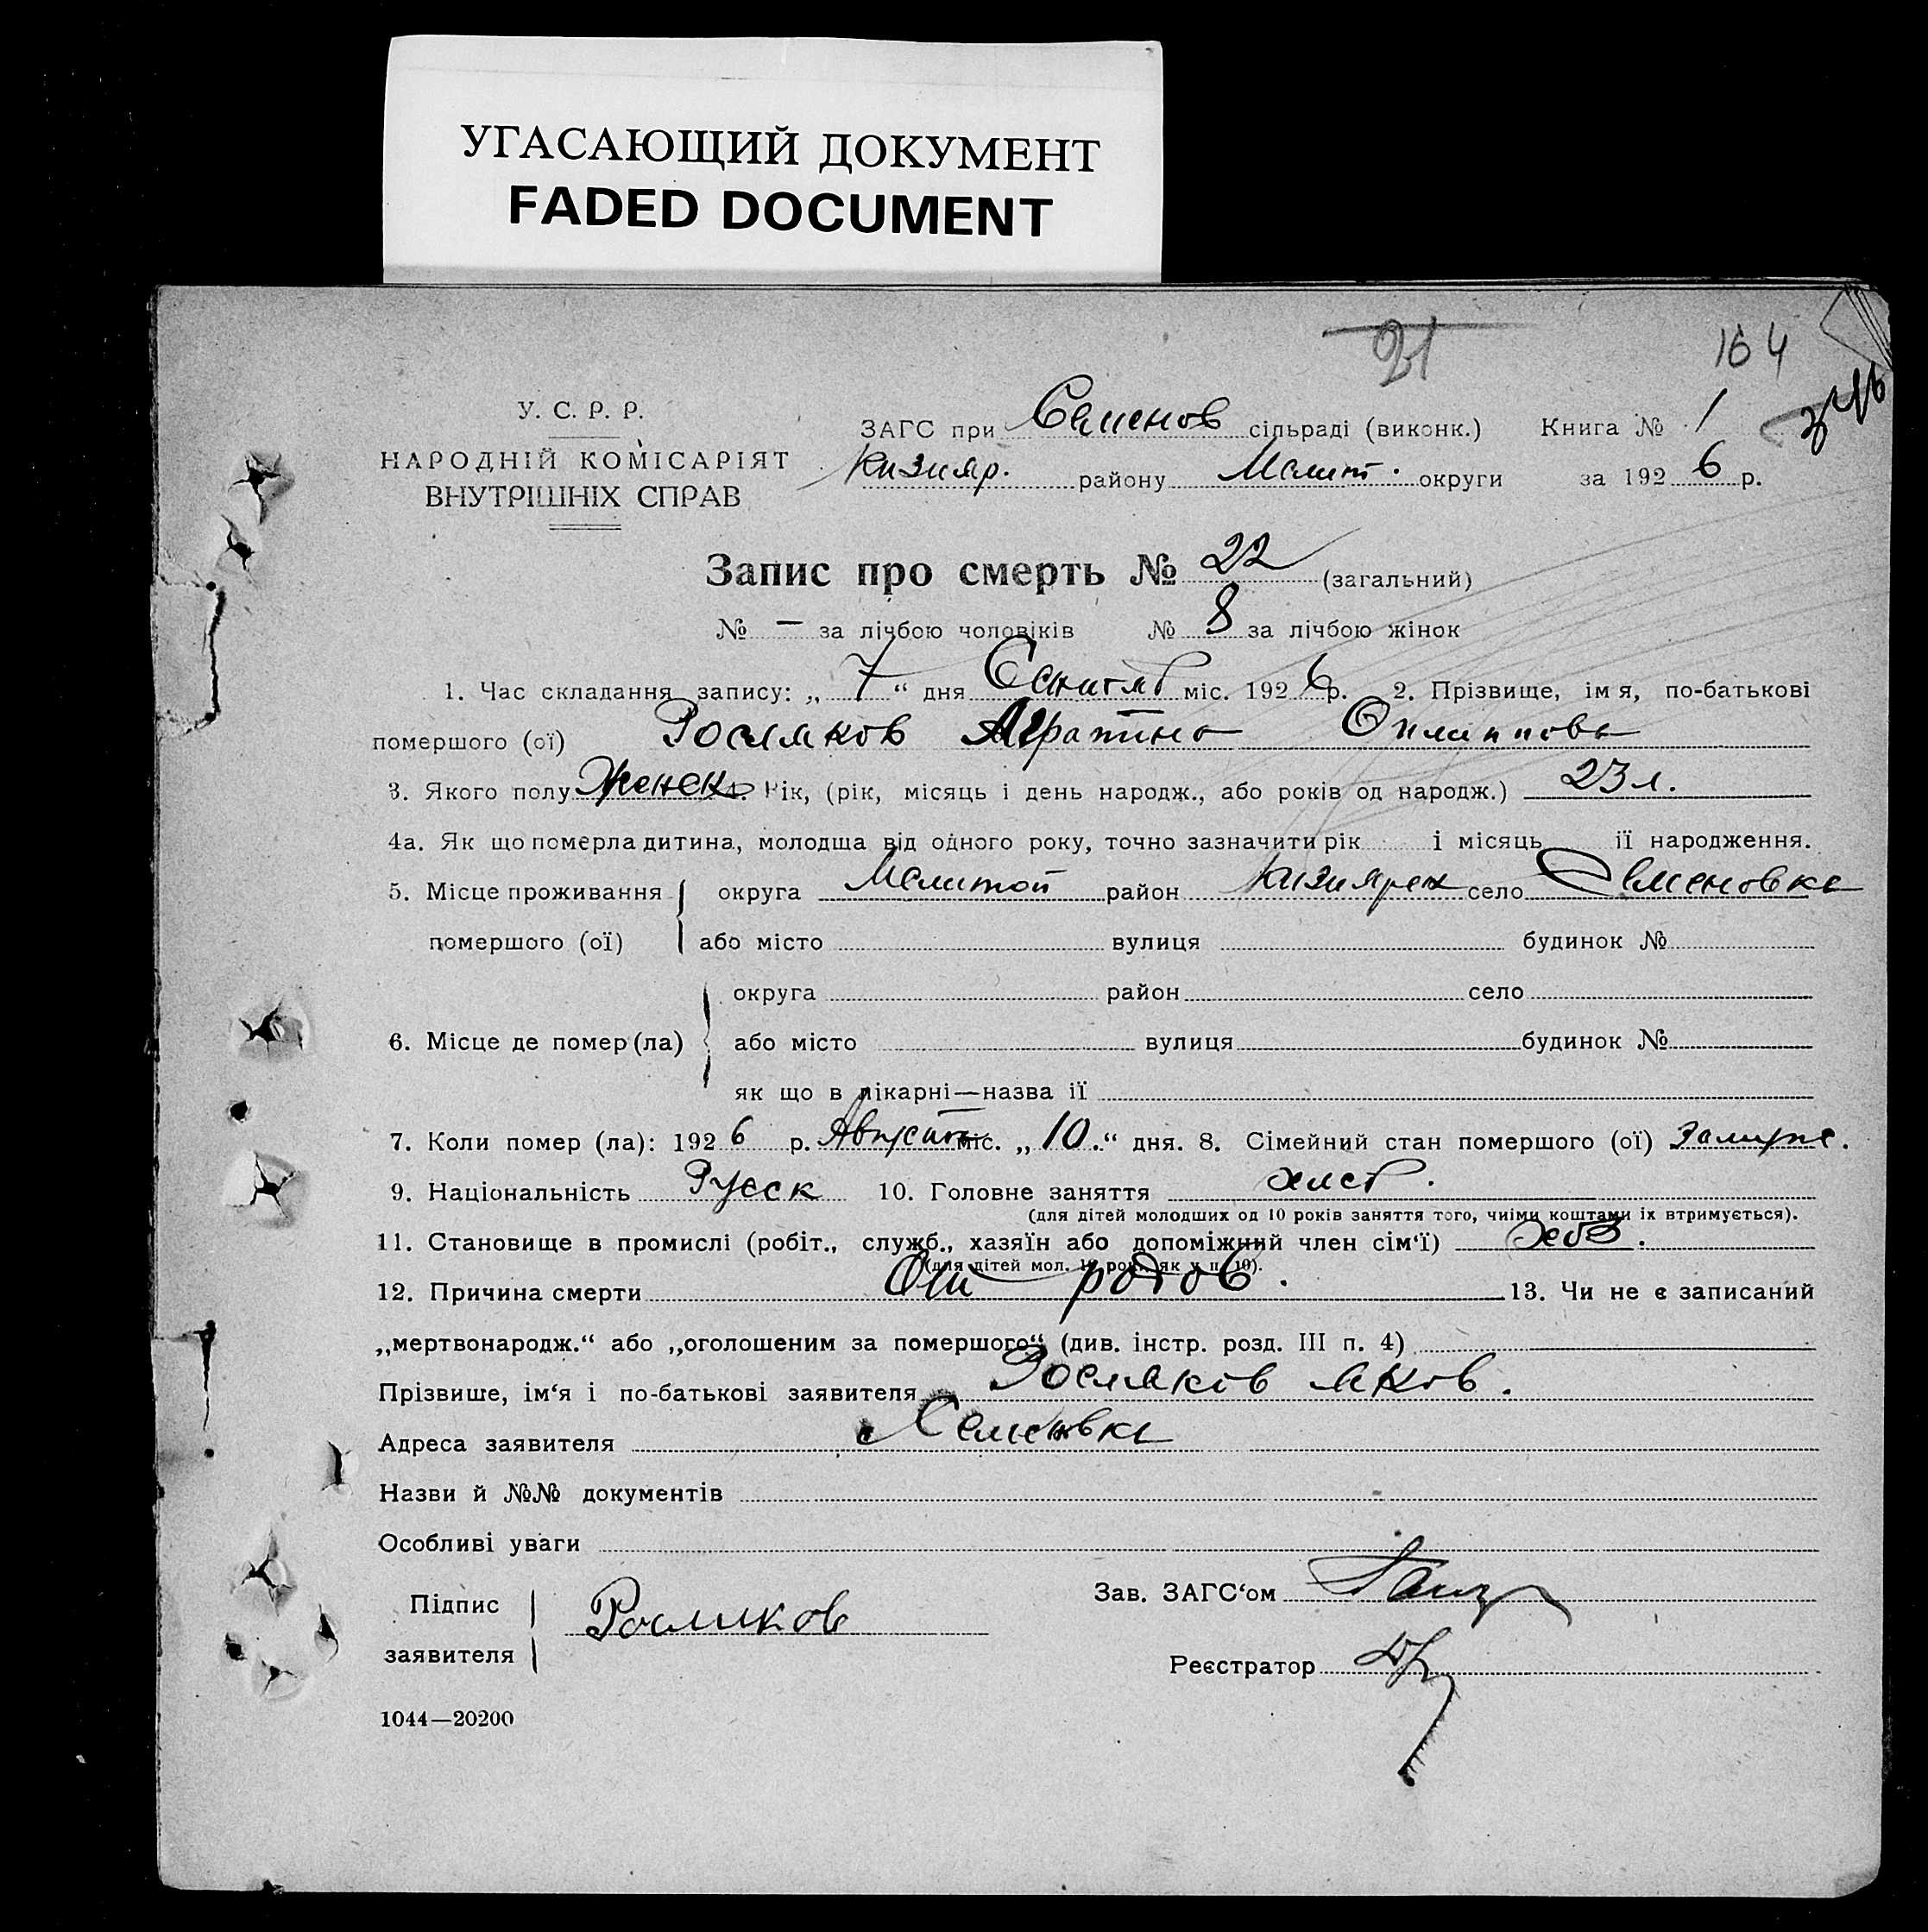 УГАСАЮЩИЙ ДОКУМЕНТ
FADED DOCUMENT
21 164
У. С. Р. Р.
НАРОДНІЙ КОМІСАРІЯТ
ВНУТРІШНІХ СПРАВ
ЗАГС при Семенов сільраді (виконк.) Книга № 1
Кизияр. району Мелит. округи за 192 6 р.
Запис про смерть № 22 (загальний)
№ — за лічбою чоловіків № 8 за лічбою жінок
1. Час складання запису: „ 7 “ дня Сентяб міс. 192 6 р. 2. Прізвище, імя, по-батькові
помершого (ої) Росляков
3. Якого полу Женск 4. Рік, (рік, місяць і день народж., або років од народж.) 23 л.
4а. Як що померла дитина, молодша від одного року, точно зазначити рік і місяць її народження.
5. Місце проживання округа Мелитоп район Кизиярск село Семеновка
помершого (ої) або місто вулиця будинок №
округа район село
6. Місце де помер (ла) або місто вулиця будинок №
як що в лікарні—назва її
7. Коли помер (ла): 192 6 р. Август міс. „ 10 “ дня. 8. Сімейний стан помершого (ої)
9. Національність Русск 10. Головне заняття хлеб.
(для дітей молодших од 10 років заняття того, чиїми коштами їх втримується).
11. Становище в промислі (робіт., служб., хазяїн або допоміжний член сім'ї)
(для дітей мол. 10 рок. як у п. 10).
12. Причина смерти От родов. 13. Чи не є записаний
„мертвонародж.“ або „оголошеним за помершого“ (див. інстр. розд. III п. 4)
Прізвише, ім‘я і по-батькові заявителя Росляков Яков.
Адреса заявителя Семеновка
Назви й №№ документів
Особливі уваги
Підпис Росляков Зав. ЗАГС‘ом
заявителя Реєстратор
1044—20200